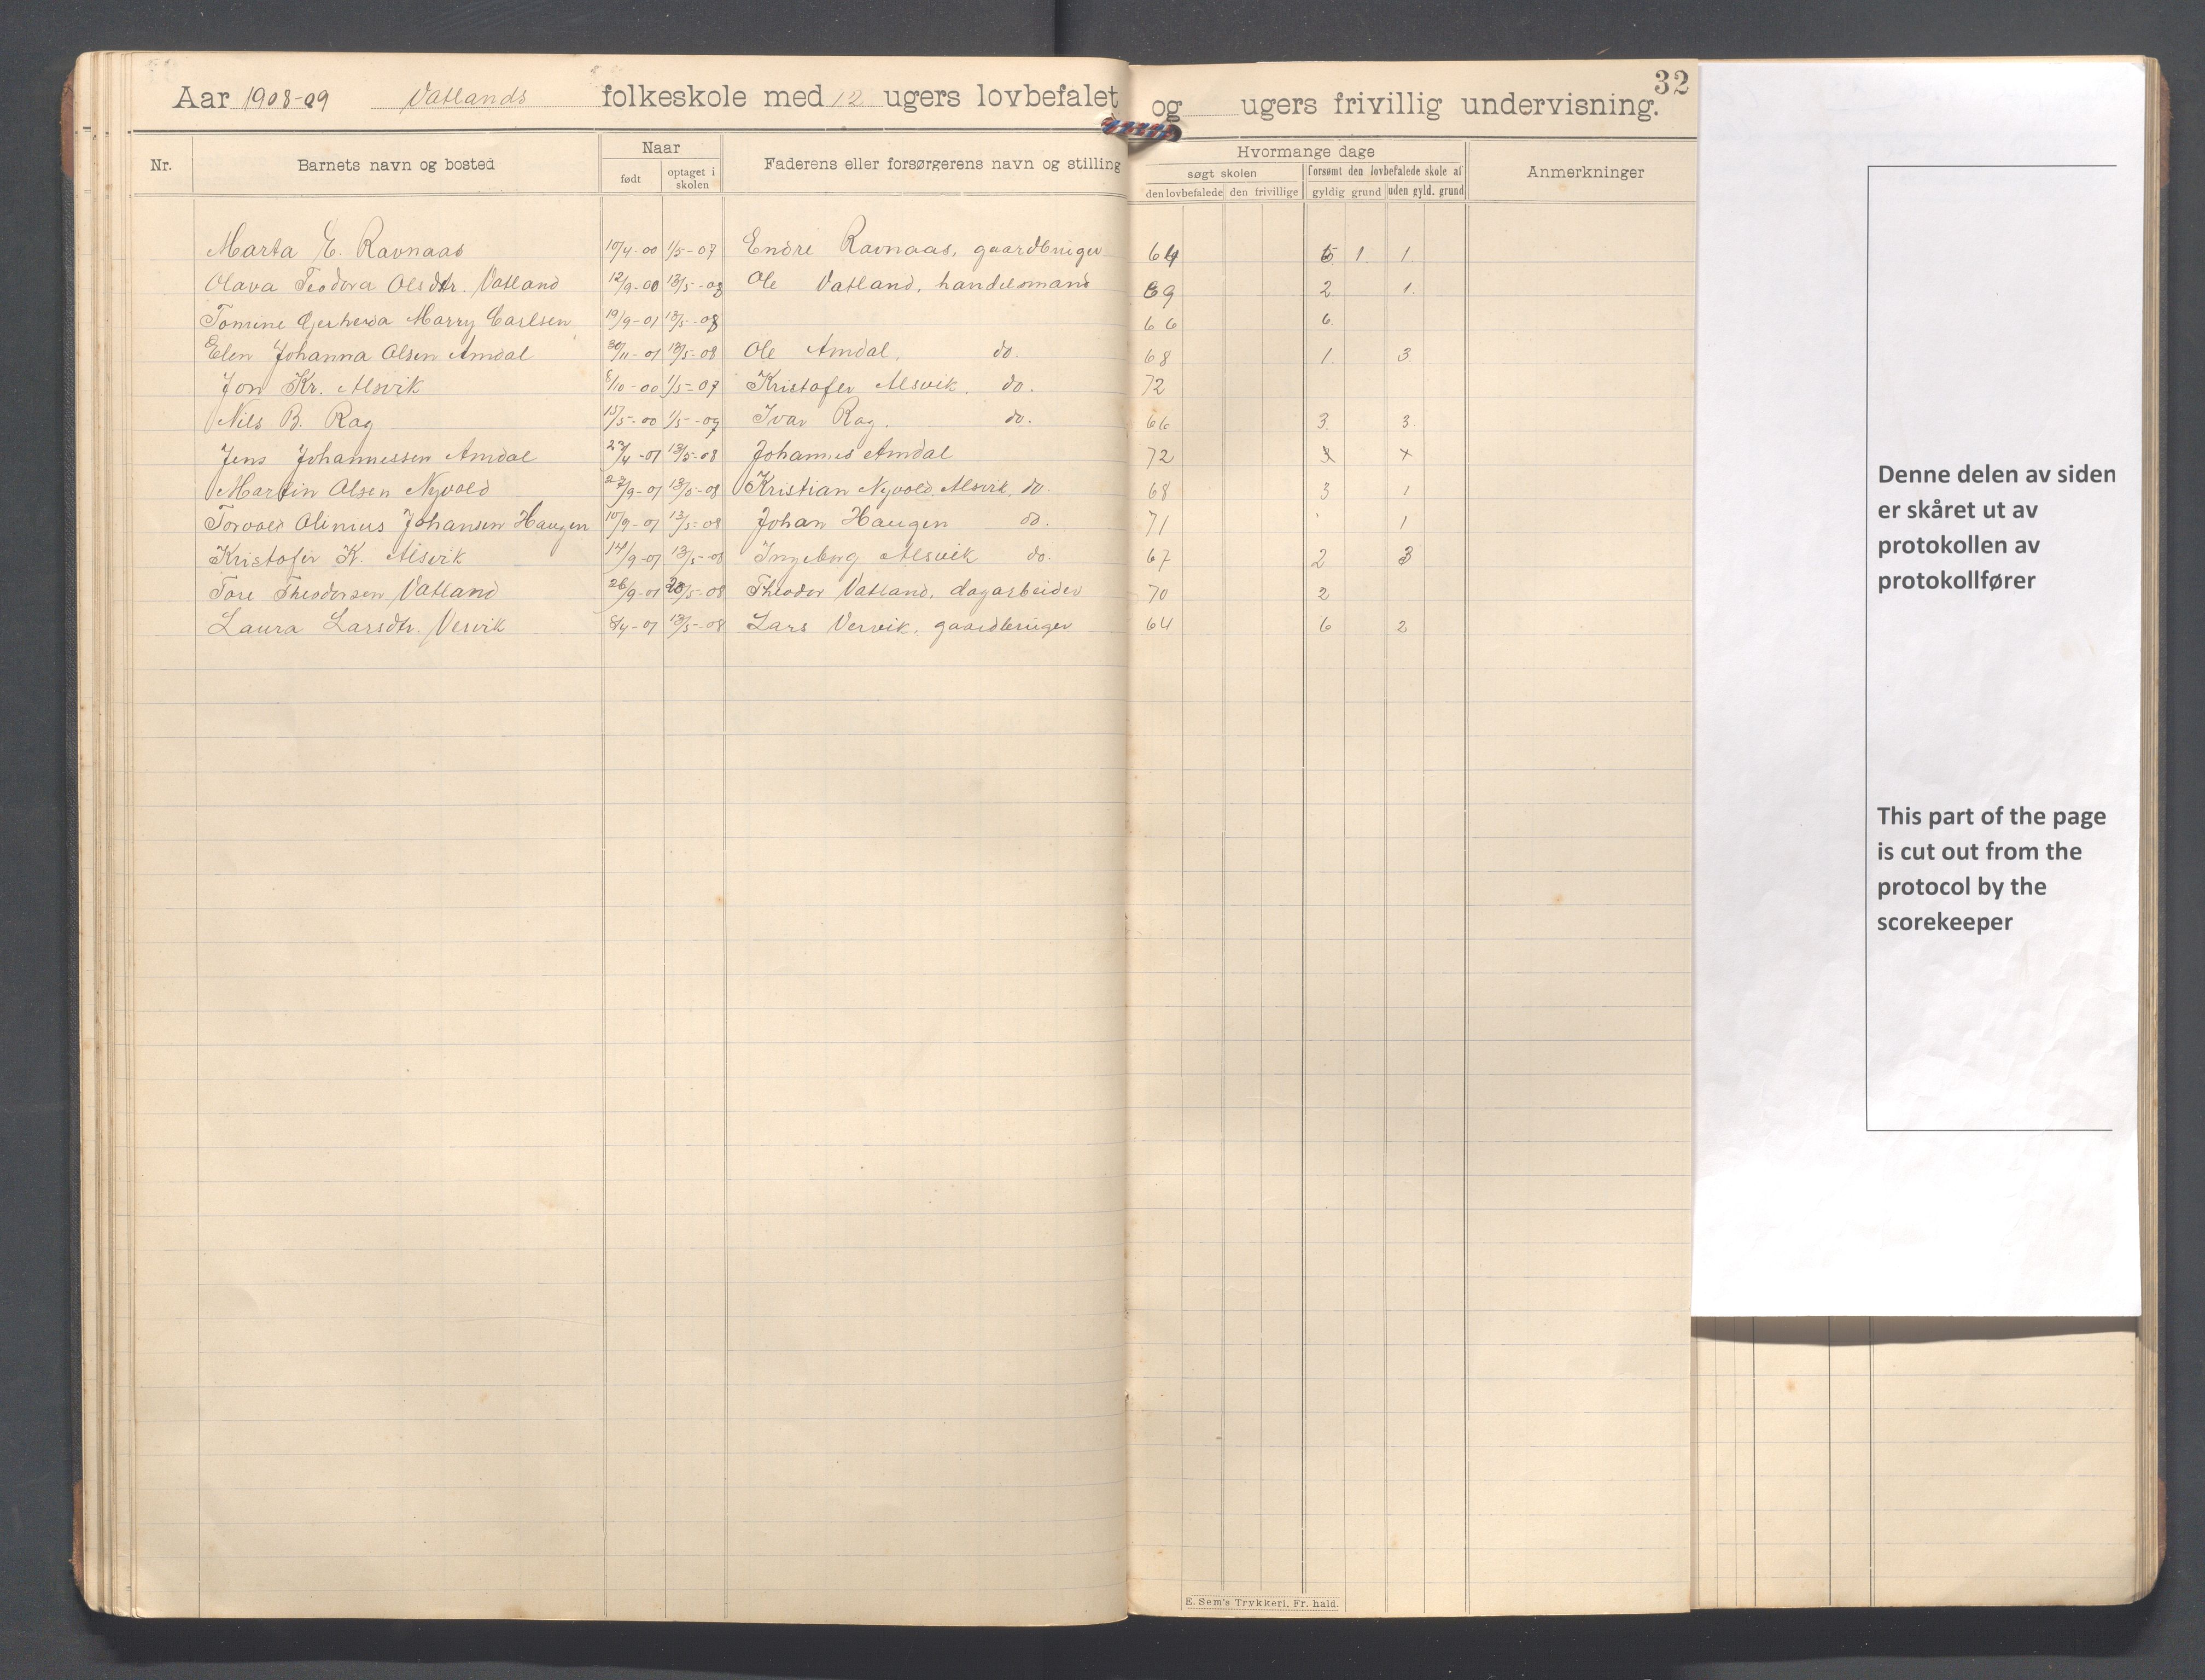 32
Aar 1908-09 Vatlands folkeskole med 12 ugers lovbefalet og ugers frivillig undervisning.
Nr. Barnets navn og bosted Naar Faderens eller forsørgerens navn og stilling Hvormange dage Anmerkninger
født optaget i skolen søgt skolen forsømt den lovbefalede skole af
den lovbefalede den frivillige gyldig grund uden gyld. grund
Marta E. Ravnaas 10/4-00 1/5-07 Endre Ravnaas, gaardbruger 64 5 1 1
Olava Teodora Olsdtr. Vatland 12/9-00 13/5-08 Ole Vatland, handelsmand 69 2 1.
Tomine Gerherda Marry Carlsen 19/9-01 13/5-08 66 6.
Elen Johanna Olsen Amdal 30/11-01 13/5-08 Ole Amdal, do. 68 1. 3.
Jon Kr. Alsvik 8/10-00 1/5-07 Kristofer Alsvik, do. 72
Nils B. Rag 15/5-00 1/5-07 Ivar Rag. do. 66 3. 3.
Jens Johannessen Amdal /4-01 13/5-08 Johannes Amdal 72
Martin Olsen Nyvold 27/9-01 13/5-08 Kristian Nyvold, Alsvik, do. 68 3 1
Torvald Olinius Johansen Haugen 10/9-01 13/5-08 Johan Haugen do. 71 1
Kristofer K. Alsvik 14/9-01 13/5-08 Ingeborg Alsvik do. 67 2 3
Tore Theodorsen Vatland 26/9-01 /5-08 Theodor Vatland, dagarbeider 70 2
Laura Larsdtr. Vesvik 8/4-01 13/5-08 Lars Vesvik, gaardbruger 64 6 2
E. Sem's Trykkeri, Fr. hald.
Denne delen av siden
er skåret ut av
protokollen av
protokollfører
This part of the page
is cut out from the
protocol by the
scorekeeper